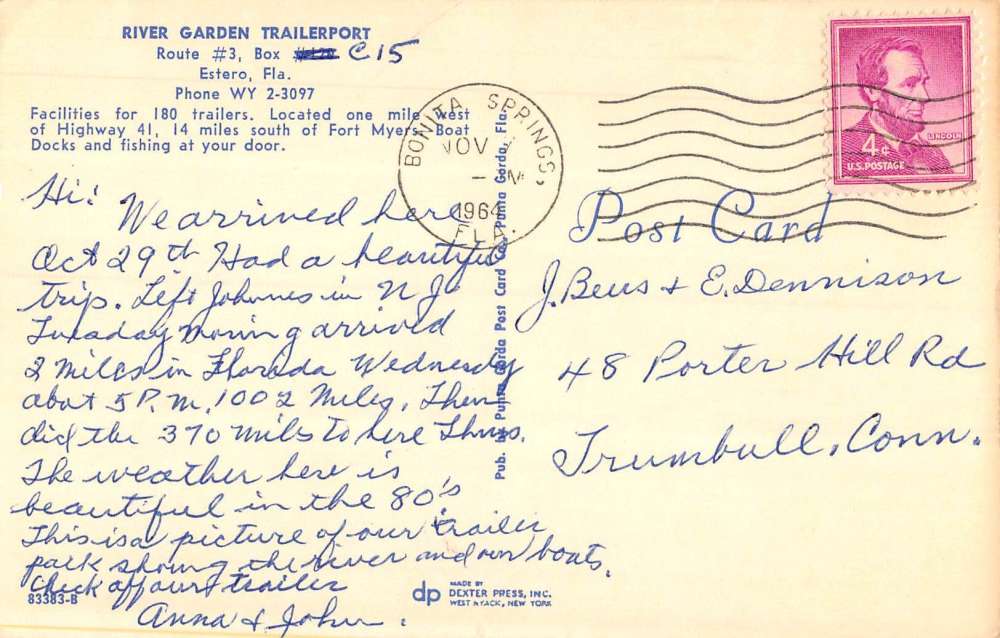 RIVER GARDEN TRAILERPORT
Route #3, Box C15
Estero, Fla.
Phone WY 2-3097
Facilities for 180 trailers. Located one mile west
of Highway 41, 14 miles south of Fort Myers. Boat
Docks and fishing at your door.
Hi!
We arrived here
Oct 29th Had a beautiful
trip. Left Johnnes in N J
Tuesday morning arrived
2 miles in Florida Wednesday
about 5 P.M. 1002 Miles. Then
did the 370 miles to here Thurs.
The weather here is
beautiful in the 80's
This is a picture of our trailer
park showing the river and our boats.
Check off our trailer
83383-B
Anna & John.
BONITA SPRINGS,
NOV
M
1964
FLA.
Pub. by Punta Gorda Post Card Co., Punta Gorda, Fla.
dp
MADE BY
DEXTER PRESS, INC.
WEST NYACK, NEW YORK
LINCOLN
4¢
U.S. POSTAGE
Post Card
J. Beus & E. Dennison
48 Porter Hill Rd
Trumbull, Conn.